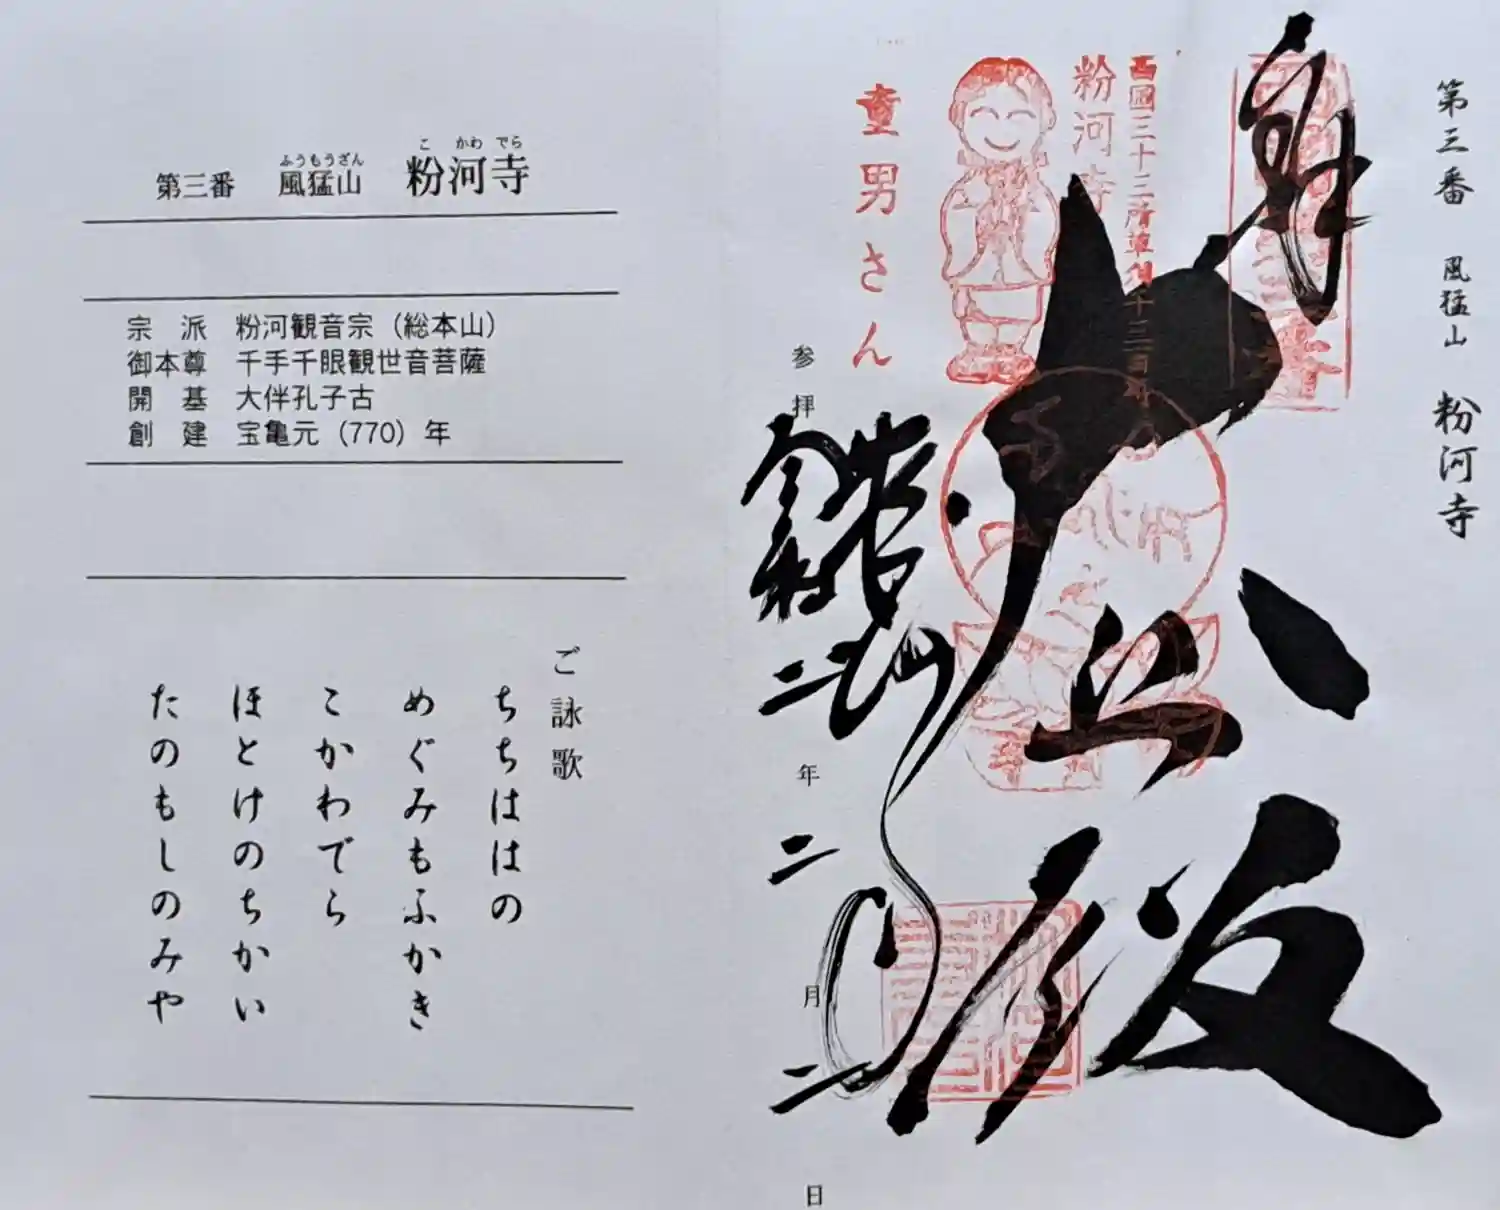 第三番 風猛山 粉河寺
ふうもうざん こかわでら
宗派 粉河観音宗（総本山）
御本尊 千手千眼観世音菩薩
開基 大伴孔子古
創建 宝亀元（770）年
ご詠歌
ちちははの
めぐみもふかき
こかわでら
ほとけのちかい
たのもしのみや
第三番 風猛山 粉河寺
奉拝
大悲殿
西国三十三所草創千三百年
粉河寺
童男さん
粉河寺
参拝 令和二年二月二日